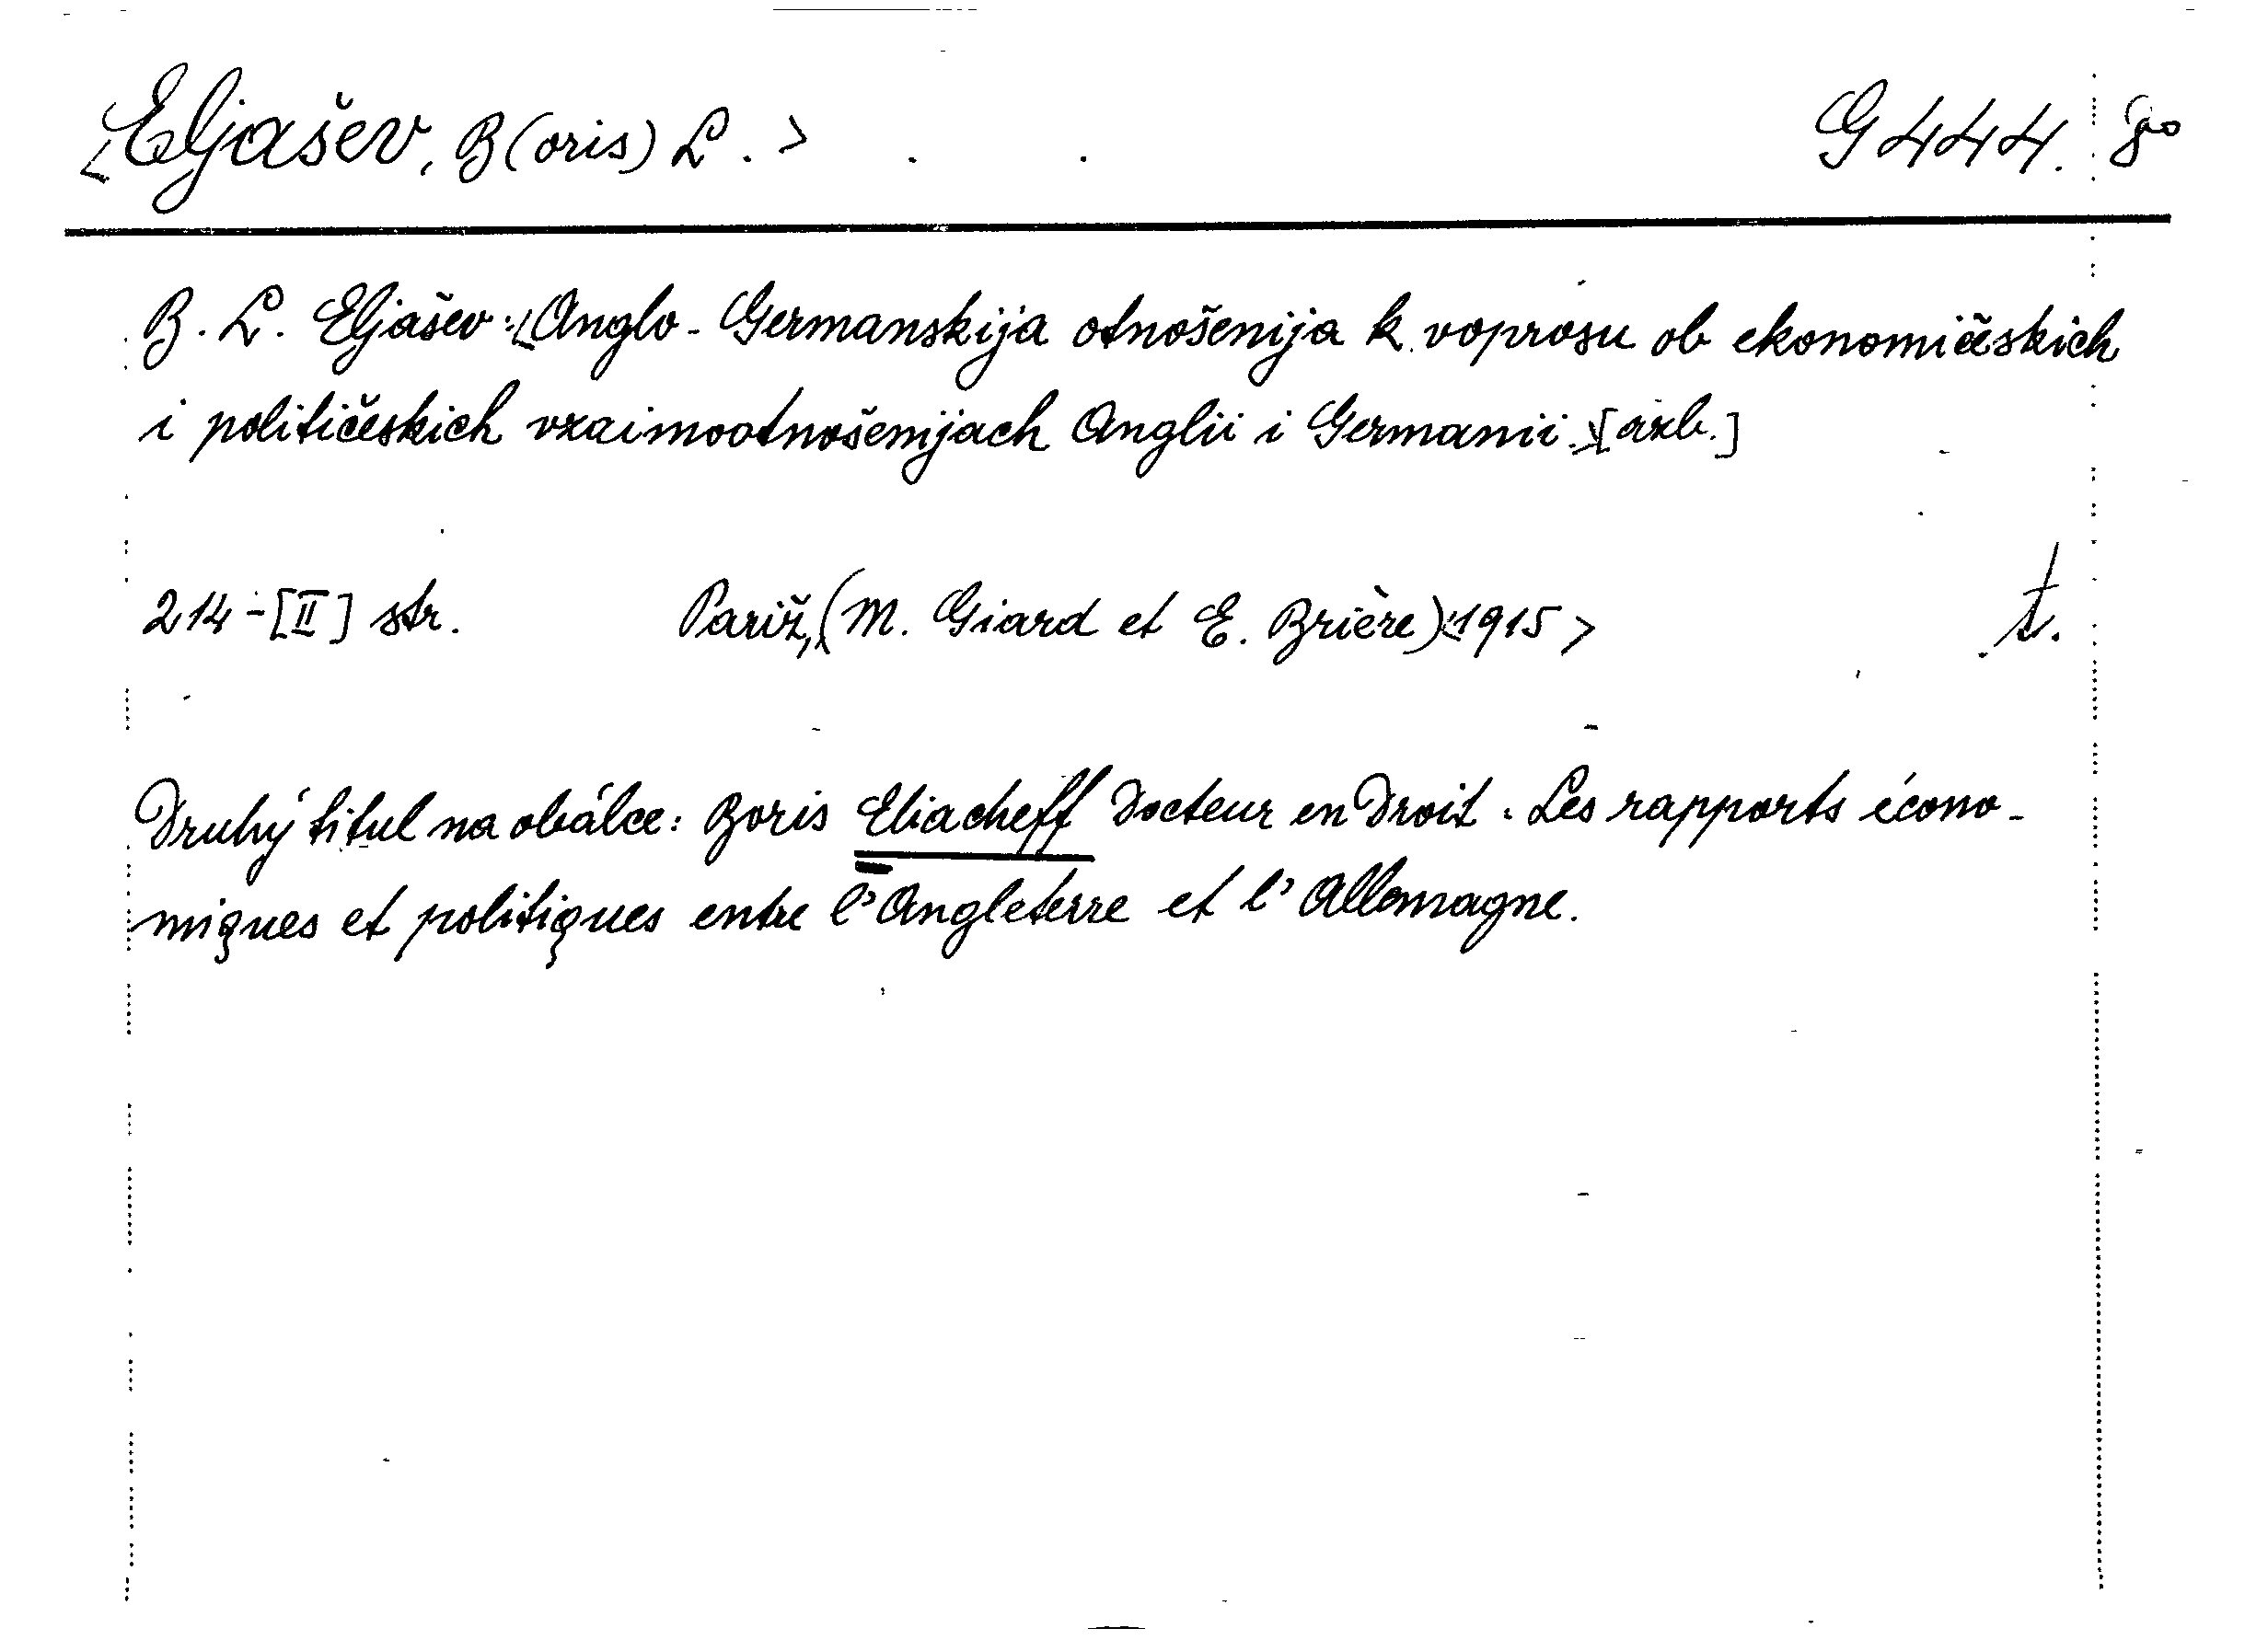 <Eljašev, B(oris) L.> G 444. 8°
B. L. Eljašev: <Anglo-Germanskija otnošenija k voprosu ob ekonomičeskich
i političeskich vzaimootnošenijach Anglii i Germanii.> [azb.]
214-[II] str. Pariž, (M. Giard et E. Brière) <1915> t.
Druhý titul na obálce: Boris Eliacheff Docteur en Droit: Les rapports écono-
miques et politiques entre l'Angleterre et l'Allemagne.